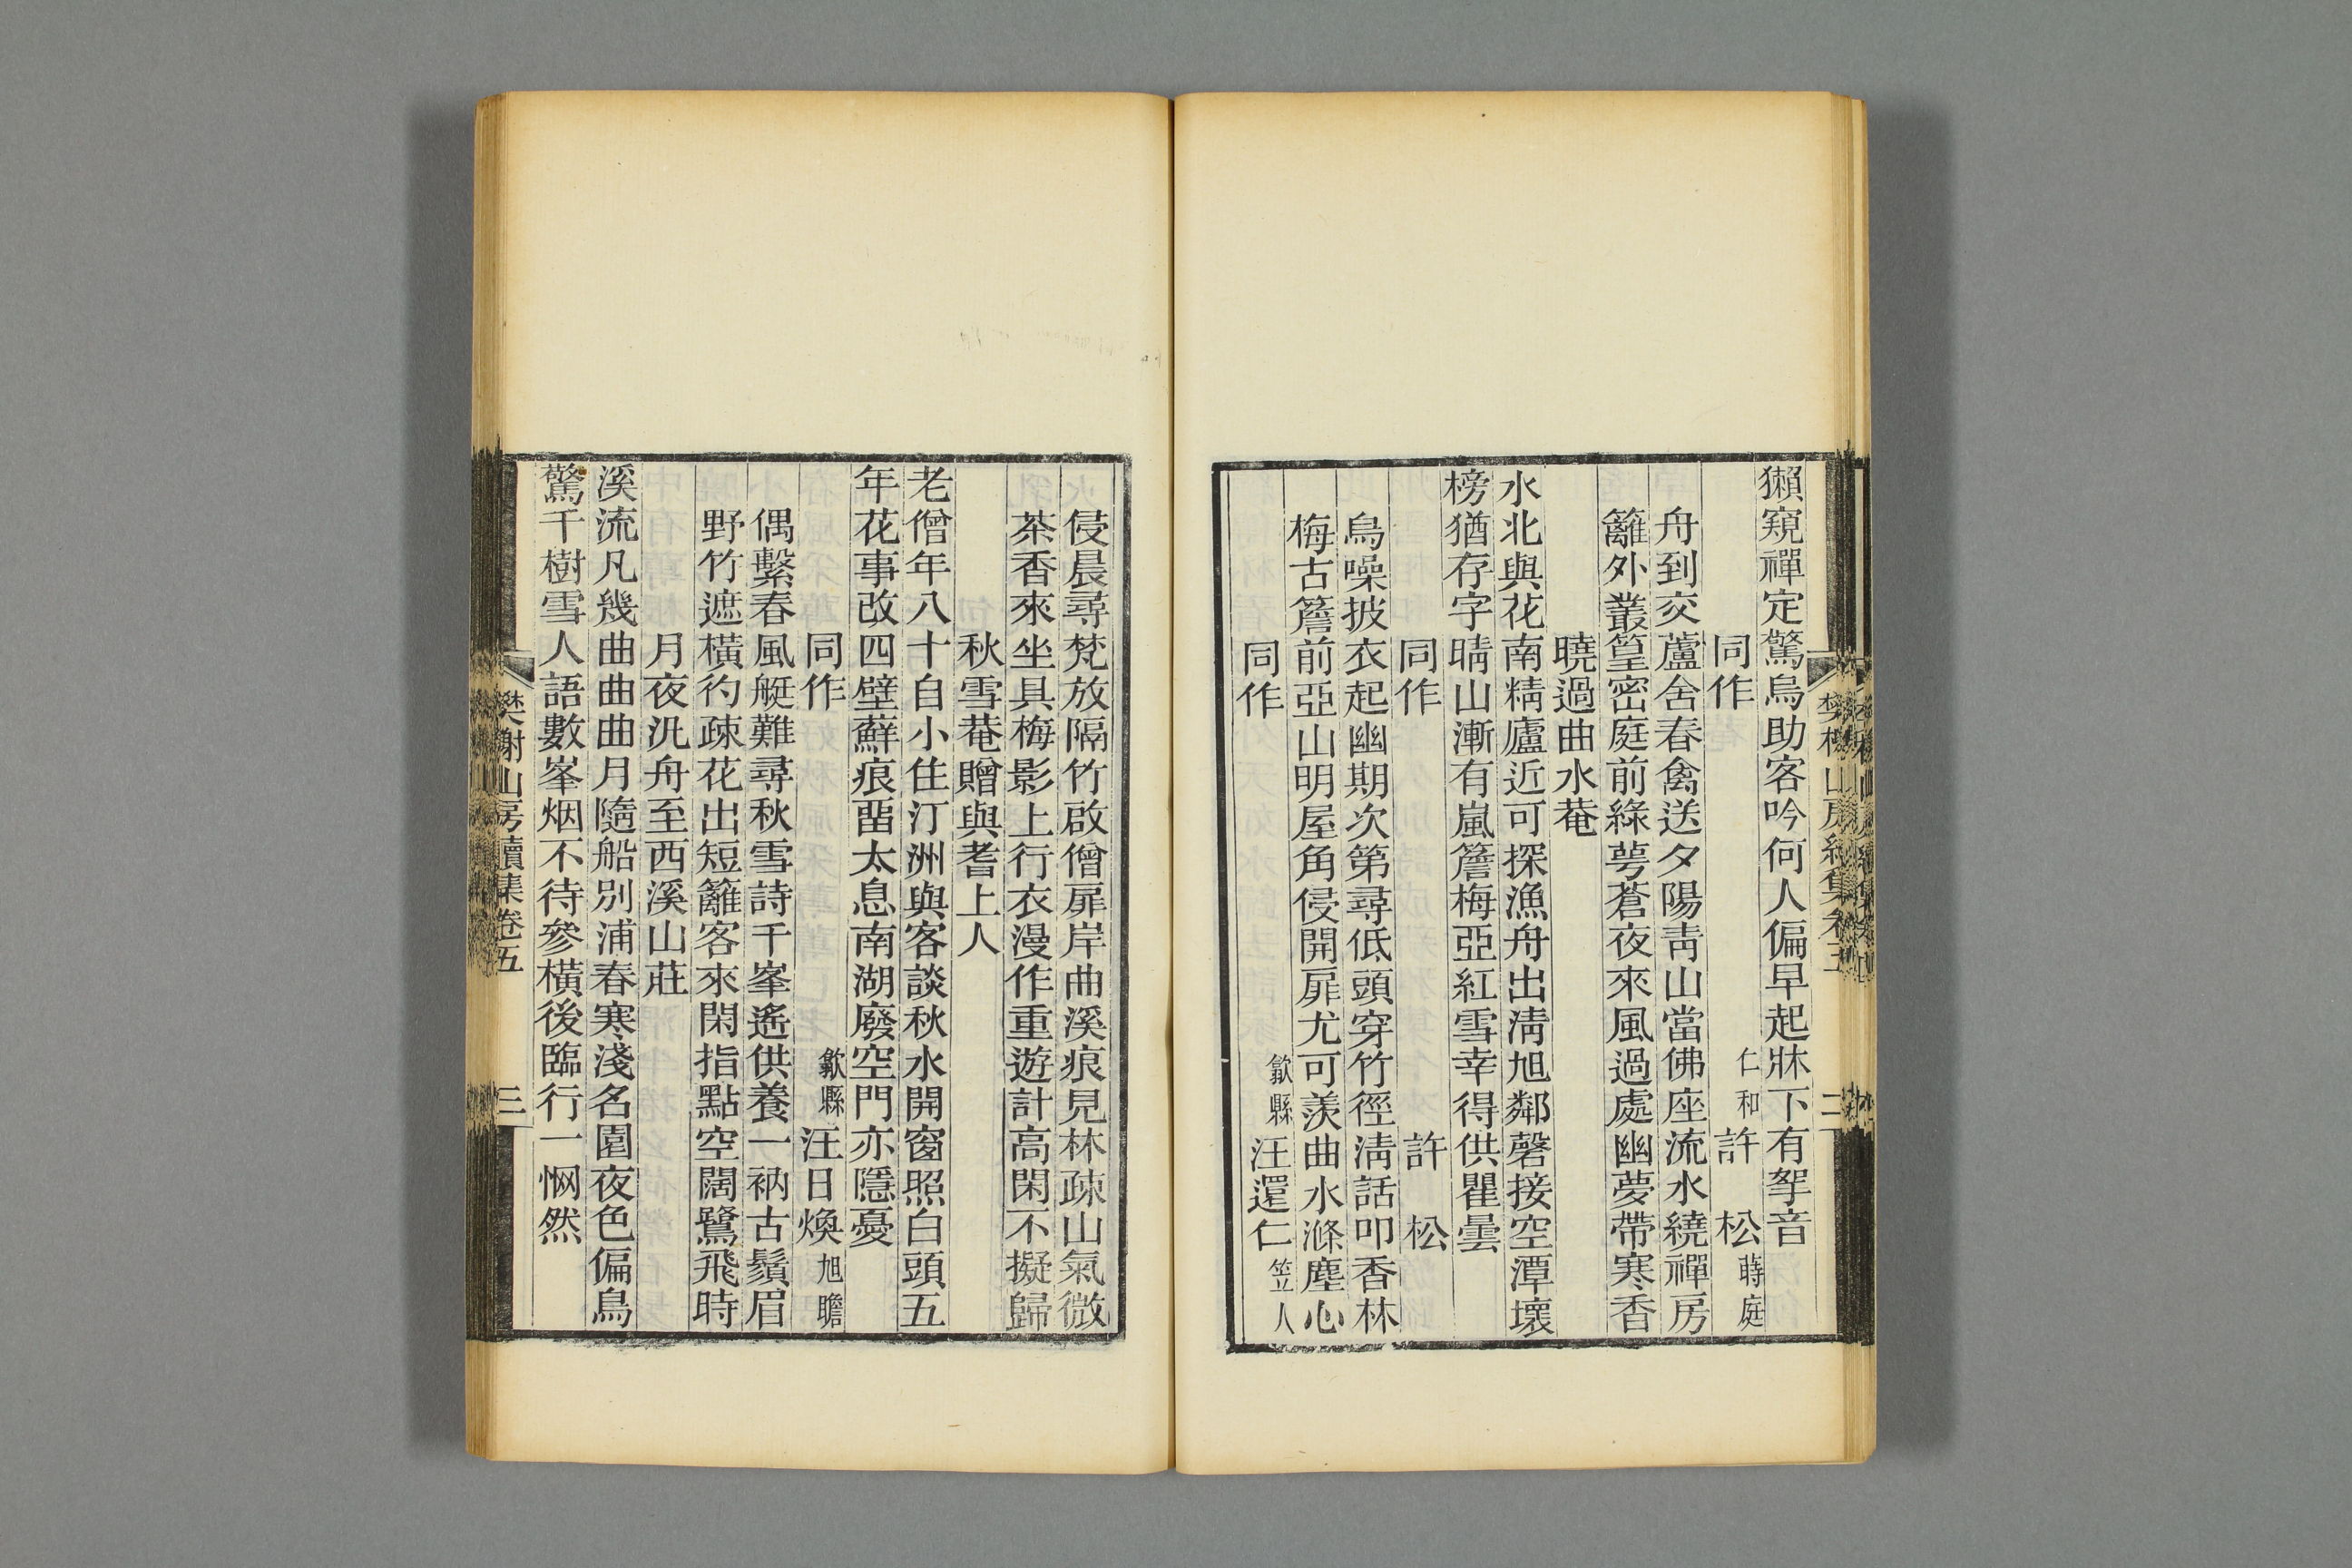 獺窺禪定驚烏助客吟何人偏早起牀下有挐音
同作 仁和許松蒔庭
舟到交蘆舍春禽送夕陽靑山當佛座流水繞禪房
籬外叢篁密庭前綠萼蒼夜來風過處幽夢帶寒香
曉過曲水菴
水北與花南精廬近可探漁舟出淸旭鄰磬接空潭壞
榜猶存字晴山漸有嵐簷梅亞紅雪幸得供瞿曇
同作 許松
烏噪披衣起幽期次第尋低頭穿竹徑淸話叩香林
梅古簷前亞山明屋角侵開扉尤可羨曲水滌塵心
同作 歙縣汪還仁笠人
侵晨尋梵放隔竹啟僧扉岸曲溪痕見林疎山氣微
茶香來坐具梅影上行衣漫作重遊計高閑不擬歸
秋雪菴贈與耆上人
老僧年八十自小住汀洲與客談秋水開窗照白頭五
年花事改四壁蘚痕畱太息南湖廢空門亦隱憂
同作 歙縣汪日煥旭瞻
偶繫春風艇難尋秋雪詩千峯遙供養一衲古鬚眉
野竹遮橫彴疎花出短籬客來閑指點空闊鷺飛時
月夜汎舟至西溪山莊
溪流凡幾曲曲曲月隨船別浦春寒淺名園夜色偏鳥
驚千樹雪人語數峯烟不待參橫後臨行一惘然
樊榭山房續集卷五
三